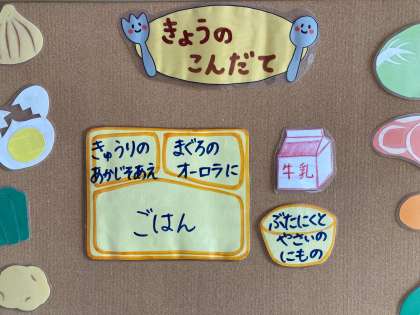 きょうの
こんだて
きゅうりの
あかじそあえ
まぐろの
オーロラに
ごはん
牛乳
ぶたにくと
やさいの
にもの